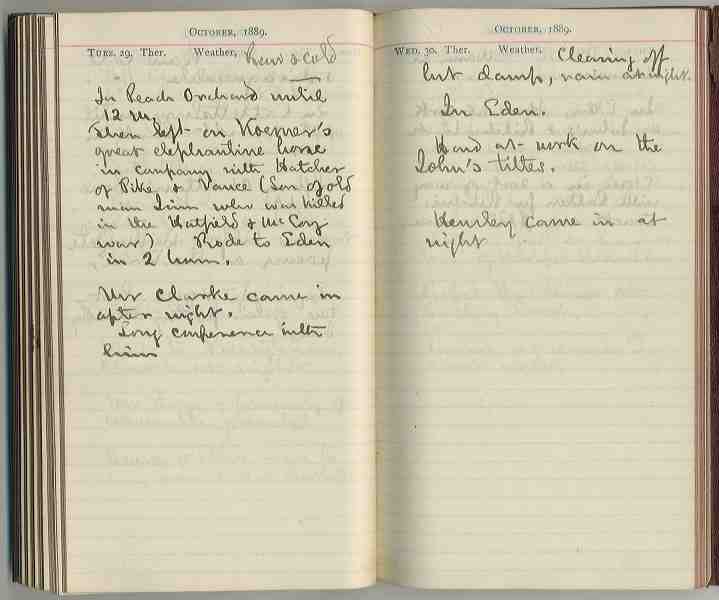 October, 1889.
Tues. 29. Ther. Weather, Raw & cold
In Peach Orchard until
12 m.
Then left on Koerner's
great elephantine horse
in company with Hatcher
of Pike & Vance (Son of old
man Jim who was killed
in the Hatfield & McCoy
war) Rode to Eden
in 2 hours.
Mr Clarke came in
after night.
Long conference with
him
October, 1889.
Wed. 30. Ther. Weather. Clearing off
but damp, rain at night.
In Eden.
Hard at work on the
John's titles.
Hensley came in at
night